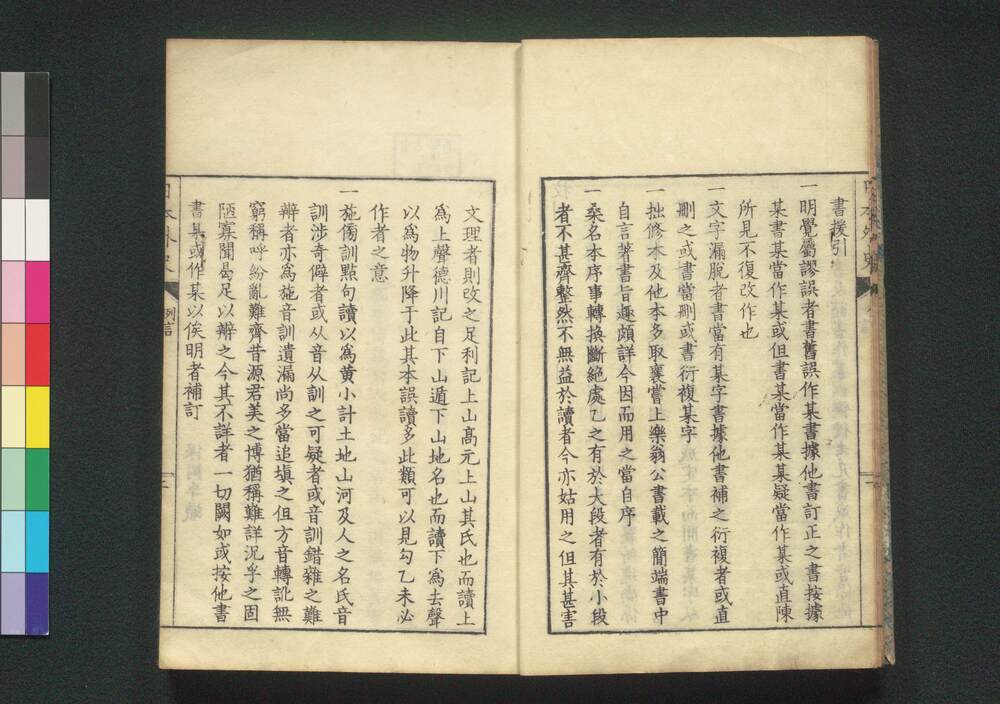 書援引
一明覺屬謬誤者書舊誤作某書據他書訂正之書按據
某書某當作某或但書某當作某某疑當作某或直陳
所見不復改作也
一文字漏脫者書當有某字書據他書補之衍複者或直
刪之或書當刪或書衍複某字
一拙修本及他本多取襄嘗上樂翁公書載之簡端書中
自言著書旨趣頗詳今因而用之當自序
一桑名本序事轉換斷絕處乙之有於大段者有於小段
者不甚齊整然不無益於讀者今亦姑用之但其甚害
文理者則改之足利記上山高元上山其氏也而讀上
爲上聲德川記自下山遁下山地名也而讀下爲去聲
以爲物升降于此其本誤讀多此類可以見勾乙未必
作者之意
一施傍訓點句讀以爲黄小計土地山河及人之名氏音
訓涉奇僻者或从音从訓之可疑者或音訓錯雜之難
辨者亦爲施音訓遺漏尚多當追塡之但方音轉訛無
窮稱呼紛亂難齊昔源君美之博猶稱難詳况乎之固
陋寡聞曷足以辨之今其不詳者一切闕如或按他書
書某或作某以俟明者補訂
日本外史
例言